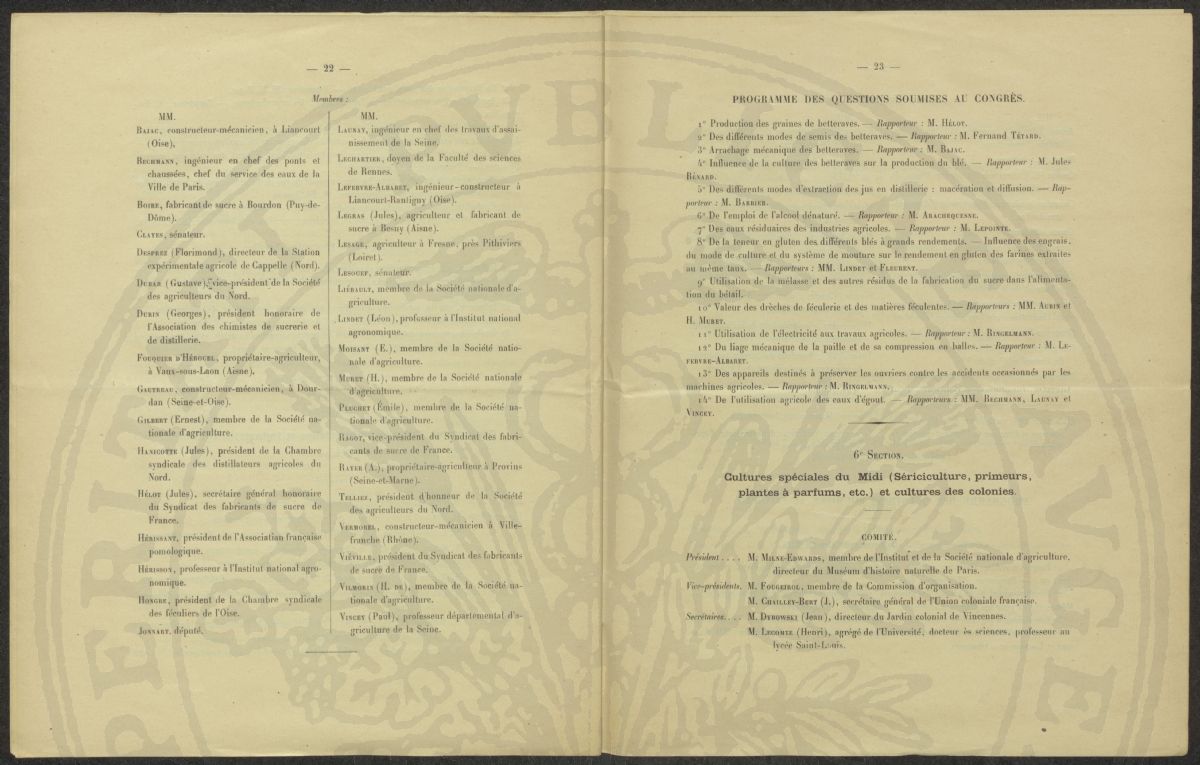 — 22 —
Membres :
MM.
BAJAC, constructeur-mécanicien, à Liancourt
(Oise).
BECHMANN, ingénieur en chef des ponts et
chaussées, chef du service des eaux de la
Ville de Paris.
BOIRE, fabricant de sucre à Bourdon (Puy-de-
Dôme).
CLAYES, sénateur.
DESPREZ (Florimond), directeur de la Station
expérimentale agricole de Cappelle (Nord).
DUBAR (Gustave), vice-président de la Société
des agriculteurs du Nord.
DURIN (Georges), président honoraire de
l'Association des chimistes de sucrerie et
de distillerie.
FOUQUIER D'HÉROUEL, propriétaire-agriculteur,
à Vaux-sous-Laon (Aisne).
GAUTREAU, constructeur-mécanicien, à Dour-
dan (Seine-et-Oise).
GILBERT (Ernest), membre de la Société na-
tionale d'agriculture.
HANICOTTE (Jules), président de la Chambre
syndicale des distillateurs agricoles du
Nord.
HÉLOT (Jules), secrétaire général honoraire
du Syndicat des fabricants de sucre de
France.
HÉRISSANT, président de l'Association française
pomologique.
HÉRISSON, professeur à l'Institut national agro-
nomique.
HONGRE, président de la Chambre syndicale
des féculiers de l'Oise.
JONNART, député.
MM.
LAUNAY, ingénieur en chef des travaux d'assai-
nissement de la Seine.
LECHARTIER, doyen de la Faculté des sciences
de Rennes.
LEFEBVRE-ALBARET, ingénieur-constructeur à
Liancourt-Rantigny (Oise).
LEGRAS (Jules), agriculteur et fabricant de
sucre à Besny (Aisne).
LESAGE, agriculteur à Fresne, près Pithiviers
(Loiret).
LESOUEF, sénateur.
LIÉBAULT, membre de la Société nationale d'a-
griculture.
LINDET (Léon), professeur à l'Institut national
agronomique.
MOISANT (E.), membre de la Société natio-
nale d'agriculture.
MURET (H.), membre de la Société nationale
d'agriculture.
PLUCHET (Émile), membre de la Société na-
tionale d'agriculture.
RAGOT, vice-président du Syndicat des fabri-
cants de sucre de France.
RAYER (A.), propriétaire-agriculteur à Provins
(Seine-et-Marne).
TELLIEZ, président d'honneur de la Société
des agriculteurs du Nord.
VERMOREL, constructeur-mécanicien à Ville-
franche (Rhône).
VIÉVILLE, président du Syndicat des fabricants
de sucre de France.
VILMORIN (H. DE), membre de la Société na-
tionale d'agriculture.
VINCEY (Paul), professeur départemental d'a-
griculture de la Seine.
— 23 —
PROGRAMME DES QUESTIONS SOUMISES AU CONGRÈS.
1° Production des graines de betteraves. — Rapporteur : M. HÉLOT.
2° Des différents modes de semis des betteraves. — Rapporteur : M. Fernand TÉTARD.
3° Arrachage mécanique des betteraves. — Rapporteur : M. BAJAC.
4° Influence de la culture des betteraves sur la production du blé. — Rapporteur : M. Jules
BÉNARD.
5° Des différents modes d'extraction des jus en distillerie : macération et diffusion. — Rap-
porteur : M. BARBIER.
6° De l'emploi de l'alcool dénaturé. — Rapporteur : M. ARACHEQUESNE.
7° Des eaux résiduaires des industries agricoles. — Rapporteur : M. LEPOINTE.
8° De la teneur en gluten des différents blés à grands rendements. — Influence des engrais,
du mode de culture et du système de mouture sur le rendement en gluten des farines extraites
au même taux. — Rapporteurs : MM. LINDET et FLEURENT.
9° Utilisation de la mélasse et des autres résidus de la fabrication du sucre dans l'alimenta-
tion du bétail.
10° Valeur des drèches de féculerie et des matières féculentes. — Rapporteurs : MM. AUBIN et
H. MURET.
11° Utilisation de l'électricité aux travaux agricoles. — Rapporteur : M. RINGELMANN.
12° Du liage mécanique de la paille et de sa compression en balles. — Rapporteur : M. LE-
FEBVRE-ALBARET.
13° Des appareils destinés à préserver les ouvriers contre les accidents occasionnés par les
machines agricoles. — Rapporteur : M. RINGELMANN.
14° De l'utilisation agricole des eaux d'égout. — Rapporteurs : MM. BECHMANN, LAUNAY et
VINCEY.
6e SECTION.
Cultures spéciales du Midi (Sériciculture, primeurs,
plantes à parfums, etc.) et cultures des colonies.
COMITÉ.
Président .... M. MILNE-EDWARDS, membre de l'Institut et de la Société nationale d'agriculture,
directeur du Muséum d'histoire naturelle de Paris.
Vice-présidents. M. FOUGEIROL, membre de la Commission d'organisation.
M. CHAILLEY-BERT (J.), secrétaire général de l'Union coloniale française.
Secrétaires.... M. DYBOWSKI (Jean), directeur du Jardin colonial de Vincennes.
M. LECOMTE (Henri), agrégé de l'Université, docteur ès sciences, professeur au
lycée Saint-Louis.